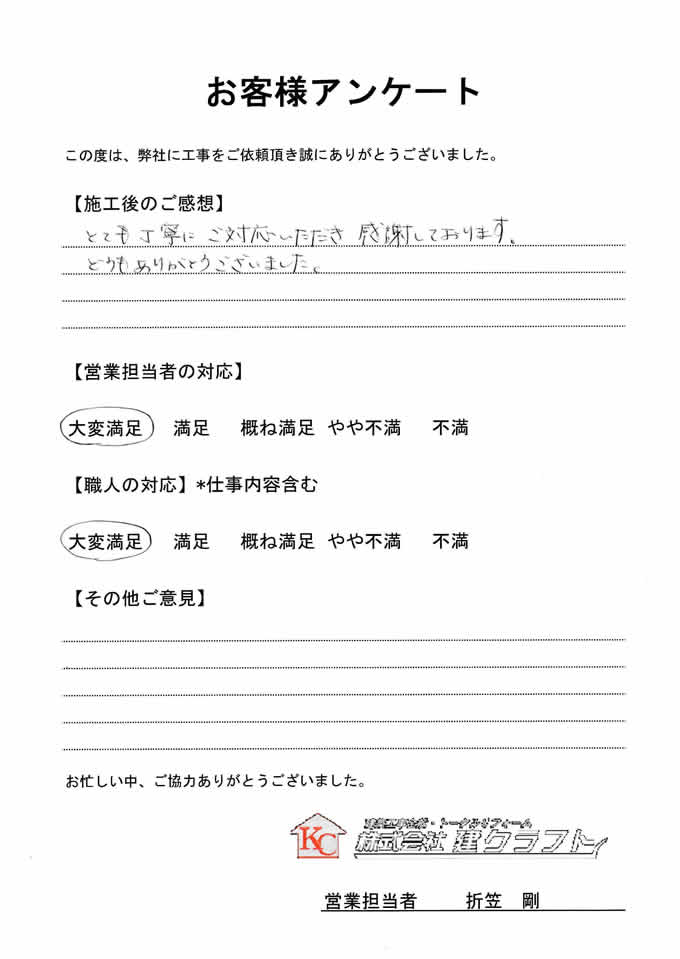 お客様アンケート
この度は、弊社に工事をご依頼頂き誠にありがとうございました。
【施工後のご感想】
とても丁寧に ご対応いただき 感謝しております。
どうもありがとうございました。
【営業担当者の対応】
大変満足 満足 概ね満足 やや不満 不満
【職人の対応】*仕事内容含む
大変満足 満足 概ね満足 やや不満 不満
【その他ご意見】
お忙しい中、ご協力ありがとうございました。
KC
・トータルリフォーム
株式会社 建クラフト
営業担当者 折笠 剛